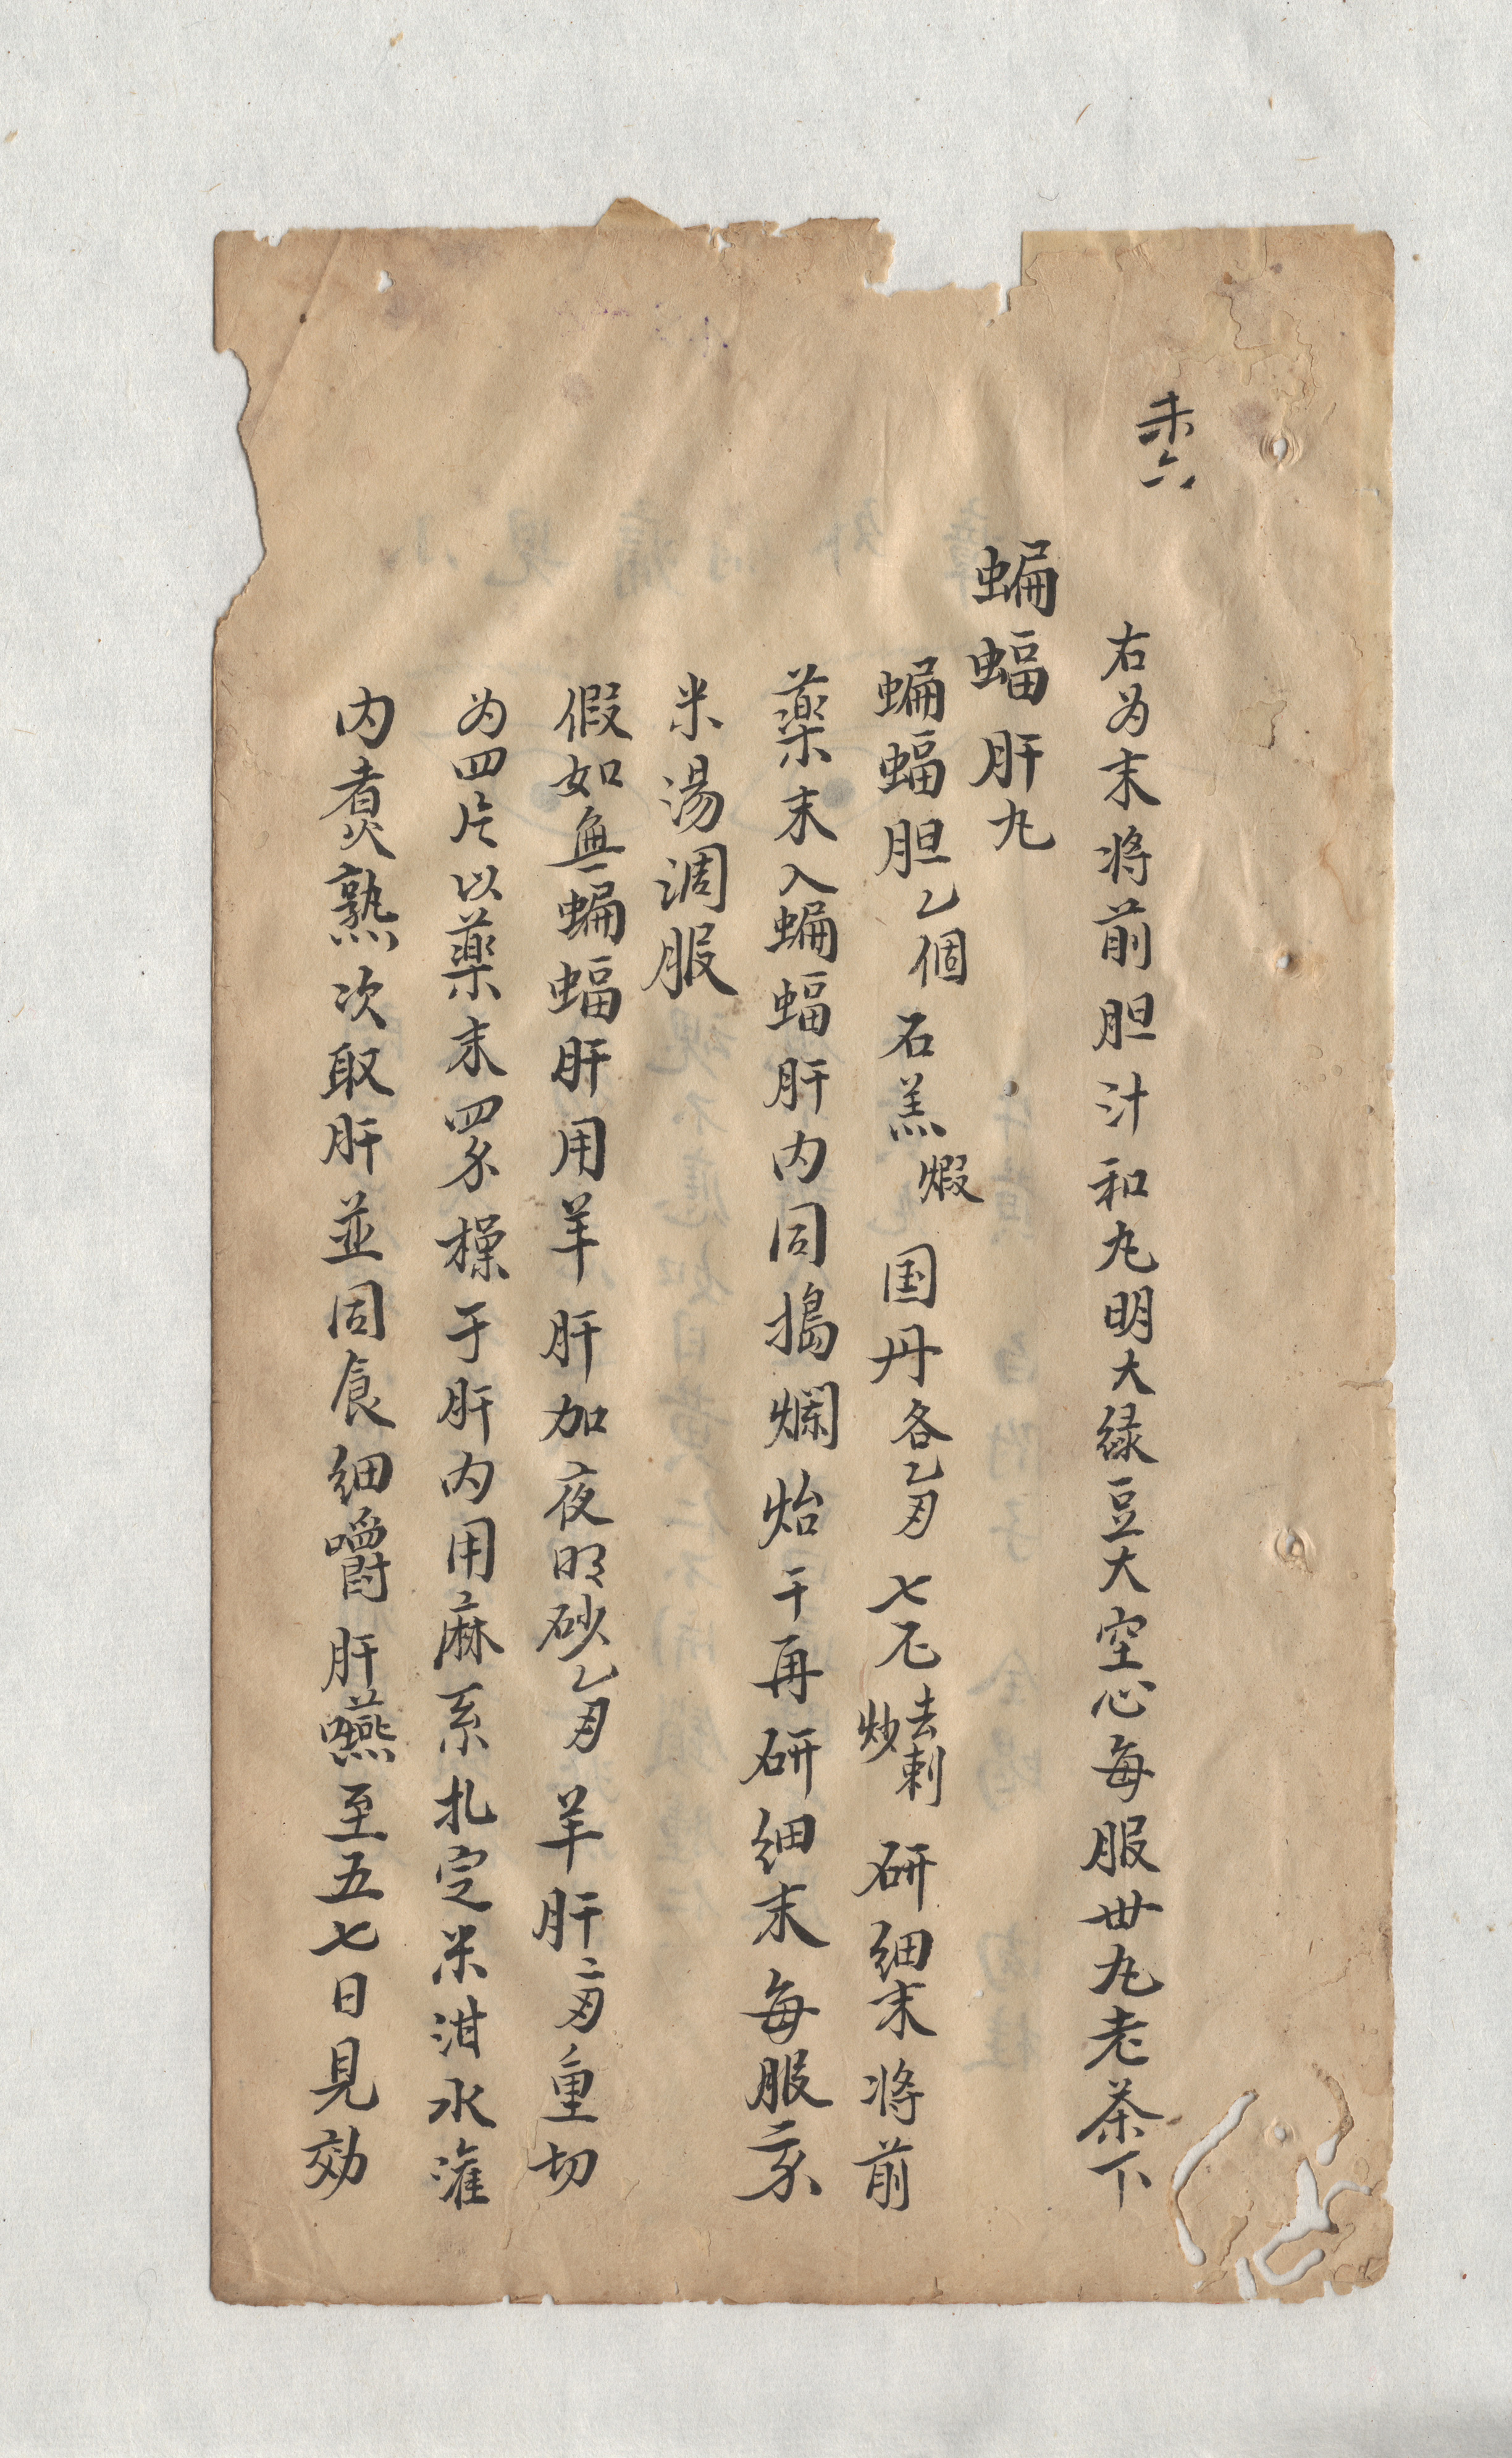 未六
右为末将前胆汁和丸明大绿豆大空心每服卅丸老茶下
蝙蝠肝丸
蝙蝠胆乙個 石羔煆 国丹各乙 七 去刺炒 研细末将前
薬末入蝙蝠肝内同搗爛炲干再研细末每服
米湯調服
假如無蝙蝠肝用羊肝加夜明砂乙 羊肝二 重切
为四片以薬末四 摻于肝内用麻系扎定米泔水灌
内煑熟次取肝並固食细嚼肝嚥至五七日見効